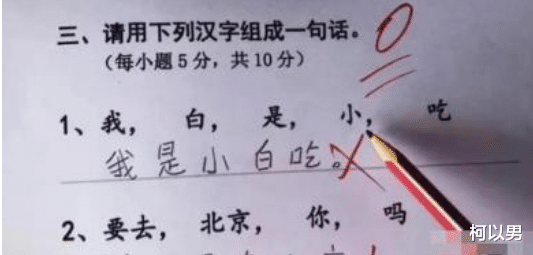 三、请用下列汉字组成一句话。
（每小题5分，共10分）
1、我， 白， 是， 小， 吃
我是小白吃。
2、要去， 北京， 你， 吗
柯以男